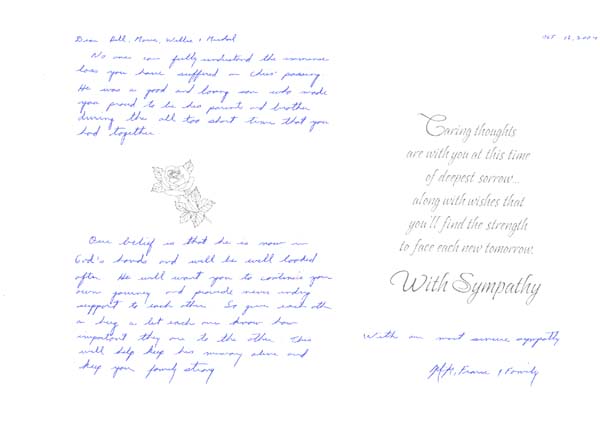 Oct 12, 2004
Dear Bill, Marie, Willie &
No one can fully understand the immense
loss you have suffered in Chris' passing.
He was a good and loving son who made
you proud to be his parents and brother
during the all too short time that you
had together.
Our belief is that he is now in
God's hands and will be well looked
after. He will want you to continue your
own journey and provide never ending
support to each other. So give each other
a hug & let each one know how
important they are to the other. This
will help keep his memory alive and
keep your family strong
Caring thoughts
are with you at this time
of deepest sorrow...
along with wishes that
you'll find the strength
to face each new tomorrow.
With Sympathy
With our most sincere sympathy
& Family